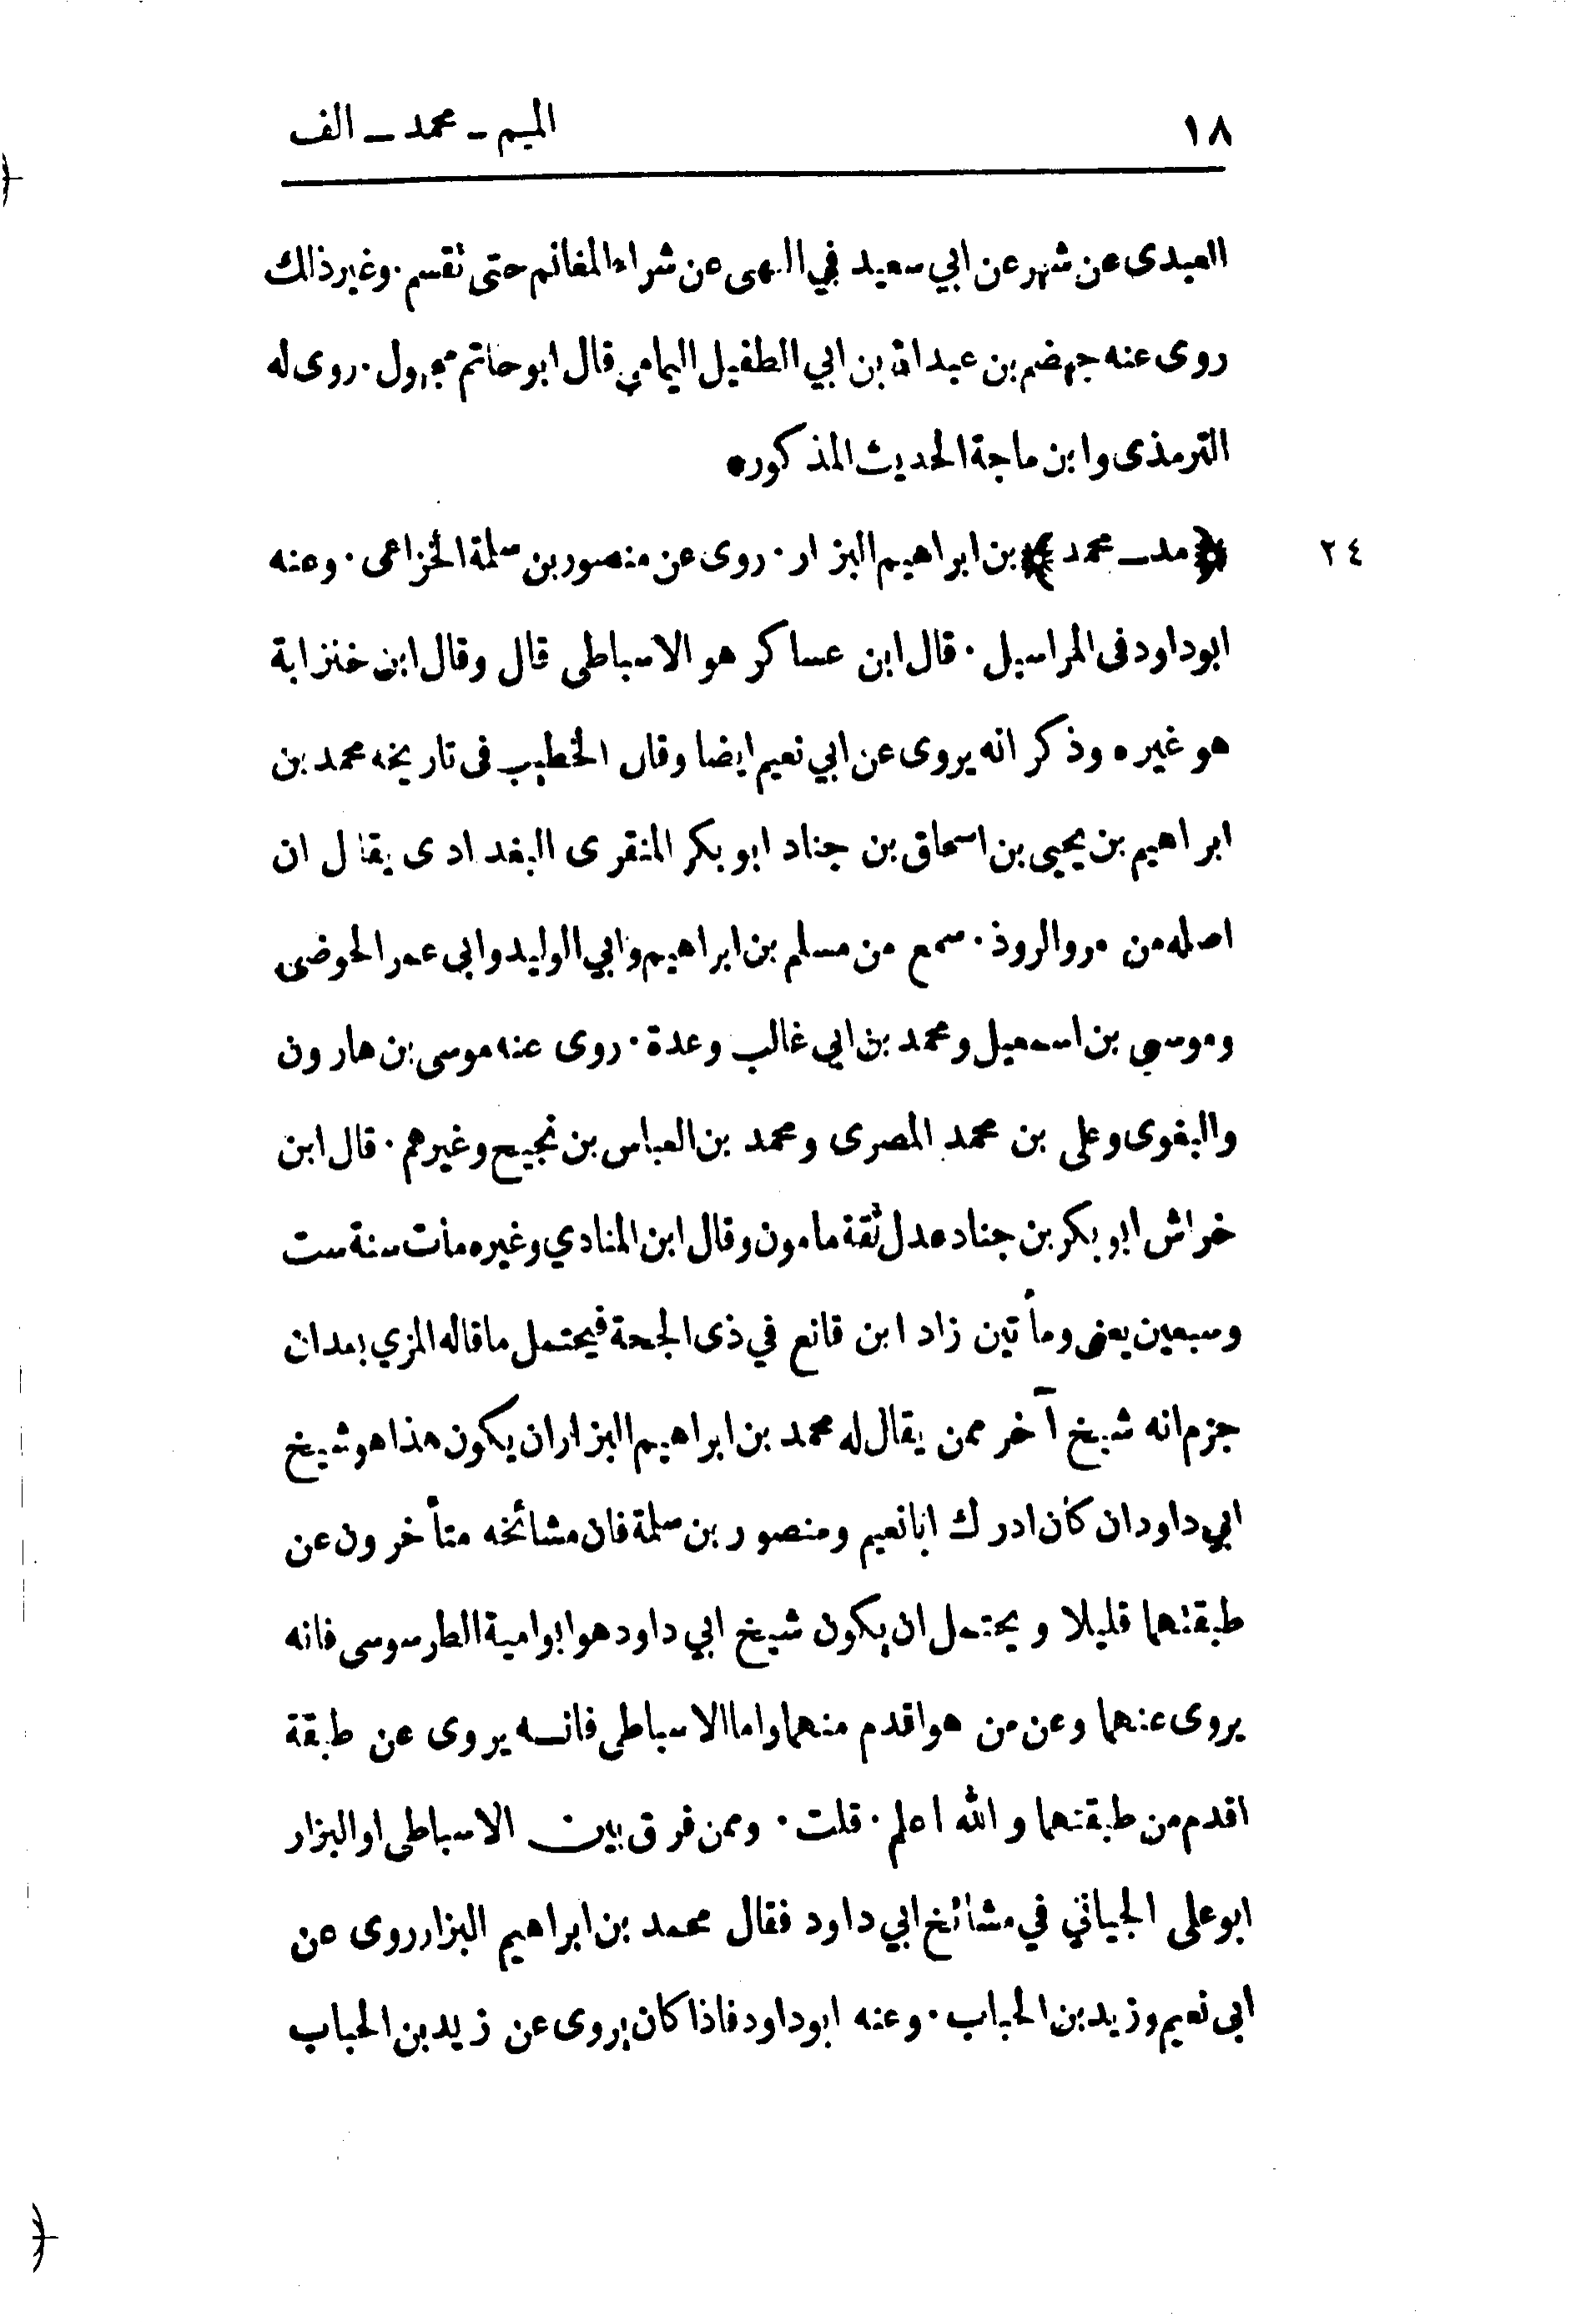 ١٨ الميم ـ محمد ـ الف
العبدى عن شهر عن ابي سعيد في النهى عن شراء المغانم حتى نقسم ٠ وغير ذالك
روى عنه جهضم بن عبدالله بن ابي الطفيل اليمامي قال ابو حاتم مجهول ٠ روى له
الترمذى وابن ماجة الحديث المذكور ٠
٢٤ ﴿ مد ـ محمد ﴾ بن ابراهيم البزار ٠ روى عن منصور بن سلمة الخزاعى ٠ وعنه
ابوداود فى المراسيل ٠ قال ابن عساكر هو الاسباطى قال وقال ابن خنزابة
هو غيره وذكر انه يروى عن ابي نعيم ايضا وقال الخطيب فى تاريخه محمد بن
ابراهيم بن يحيى بن اسحاق بن جناد ابو بكر المنقرى البغدادى يقال ان
اصله من مرو الروذ ٠ سمع من مسلم بن ابراهيم وابي الوليد وابى عمر الحوضى
وموسى بن اسمعيل ومحمد بن ابي غالب وعدة ٠ روى عنه موسى بن هارون
والبغوى وعلى بن محمد المصرى ومحمد بن العباس بن نجيح وغيرهم ٠ قال ابن
خراش ابو بكر بن جناد عدل ثقة مامون وقال ابن المنادي وغيره مات سنة ست
وسبعين يعنى ومأتين زاد ابن قانع في ذى الحجة فيحتمل ما قاله المزي بعد ان
جزم انه شيخ آخر ممن يقال له محمد بن ابراهيم البزار ان يكون هذا هو شيخ
ابي داود ان كان ادرك ابا نعيم ومنصور بن سلمة فان مشائخه متأخرون عن
طبقتهما قليلا ويحتمل ان يكون شيخ ابي داود هو ابو امية الطرسوسى فانه
يروى عنهما وعن من هو اقدم منهما واما الاسباطى فانه يروى عن طبقة
اقدم من طبقتهما والله اعلم ٠ قلت ٠ وممن فرق بين الاسباطى او البزار
ابو على الجياني في مشائخ ابي داود فقال محمد بن ابراهيم البزار روى عن
ابى نعيم وزيد بن الحباب ٠ وعنه ابوداود فاذا كان يروى عن زيد بن الحباب